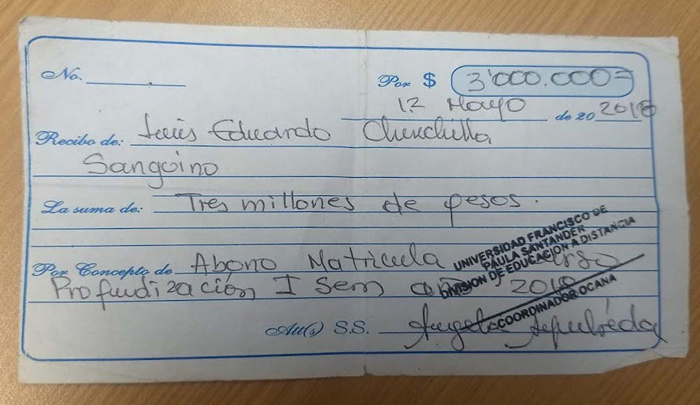 No. Por $ 3'000.000=
12 Mayo de 20 2018
Recibo de: Luis Eduardo Chinchilla
Sanguino
La suma de: Tres millones de pesos.
Por Concepto de Abono Matricula
Profundizacion I Sem año 2018
UNIVERSIDAD FRANCISCO DE
PAULA SANTANDER
DIVISION DE EDUCACION A DISTANCIA
COORDINADOR OCAÑA
Att(s) S.S. Angela Sepulveda